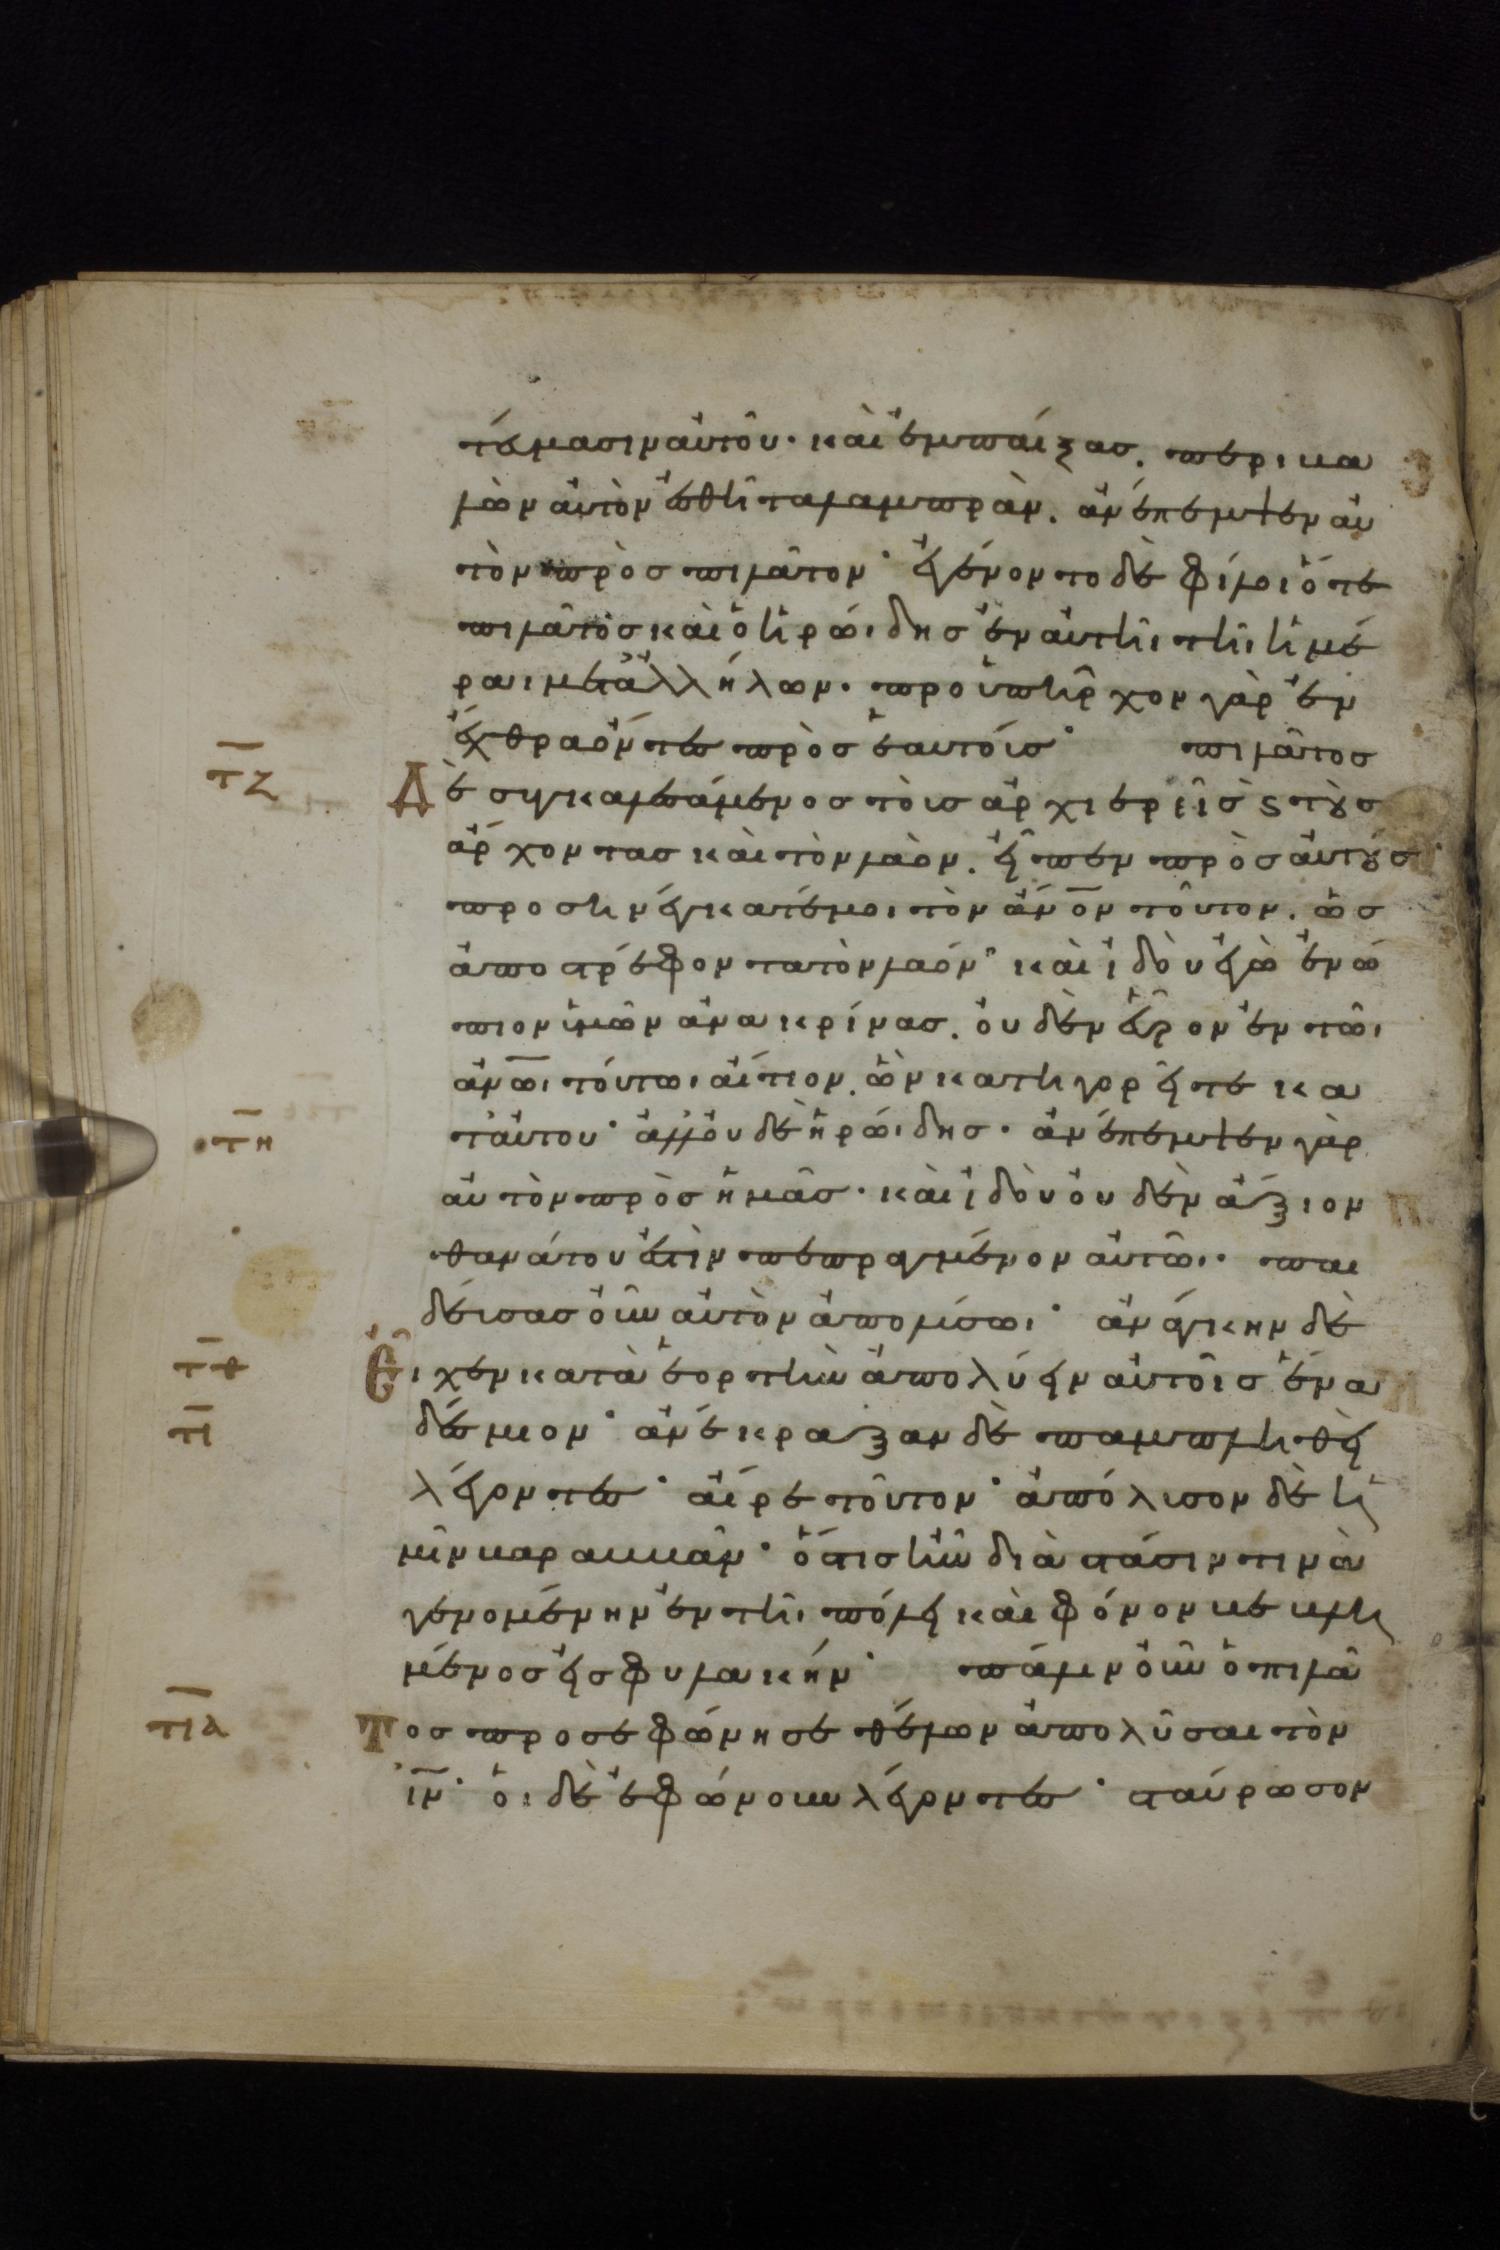 τεύμασιν αὐτοῦ· καὶ ἐμπαίξας. περιβα
λὼν αὐτὸν ἐσθῆτα λαμπρὰν. ἀνέπεμψεν αὐ
τὸν πρὸς πιλᾶτον· ἐγένοντο δὲ φίλοι ὅτε
πιλᾶτος καὶ ὁ ἡρώιδης ἐν αὐτῆι τῆι ἡμέ
ραι μετἀλλήλων· προϋπῆρχον γὰρ ἐν
ἔχθρα ὄντες πρὸς ἑαυτούς· πιλᾶτος
τζ Δὲ συγκαλεσάμενος τοὺς ἀρχιερεῖς ϗ τοὺς
ἄρχοντας καὶ τὸν λαὸν. εἶπεν πρὸς αὐτούς·
προσηνέγκατέ μοι τὸν ἄνον τοῦτον. ὡς
ἀποστρέφοντα τὸν λαόν· καὶ ἰδοὺ ἐγὼ ἐνώ
πιον ὑμῶν ἀνακρίνας. οὐδὲν εὗρον ἐν τῶι
ἀνωι τούτωι αἴτιον. ὧν κατηγορεῖτε κα
τη τ' αὐτοῦ· ἀλλ' οὐδὲ ἡρώιδης· ἀνέπεμψεν γὰρ
αὐτὸν πρὸς ἡμᾶς· καὶ ἰδοὺ οὐδὲν ἄξιον
θανάτου ἐστὶν πεπραγμένον αὐτῶι· παι
δεύσας οὖν αὐτὸν ἀπολύσω· ἀνάγκην δὲ
τθ Εἶχεν κατὰ ἑορτὴν ἀπολύειν αὐτοῖς ἕνα
τι δέσμιον· ἀνέκραξαν δὲ παμπληθεὶ
λέγοντες· αἶρε τοῦτον· ἀπόλυσον δὲ ἡ
μῖν βαραββᾶν· ὅστις ἦν διὰ στάσιν τινὰ
γενομένην ἐν τῆι πόλει καὶ φόνον βεβλη
μένος εἰς φυλακήν· πάλιν οὖν ὁ πιλᾶ
τια Τος προσεφώνησε θέλων ἀπολῦσαι τὸν
ιν· οἱ δὲ ἐφώνουν λέγοντες· σταύρωσον